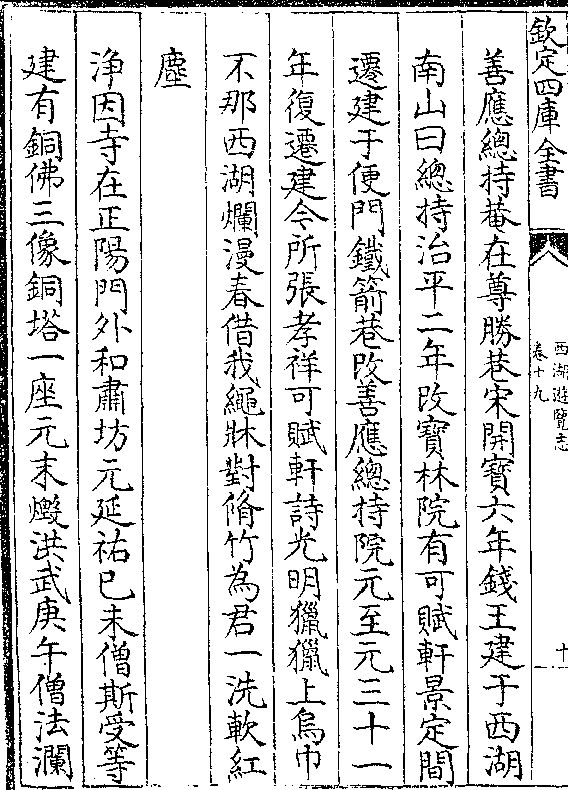 欽定四庫全書
西湖遊覽志
卷十九
十
善應總持菴在尊勝巷宋開寶六年錢王建于西湖
南山曰總持治平二年改寶林院有可賦軒景定間
遷建于便門鐵箭巷改善應總持院元至元三十一
年復遷建今所張孝祥可賦軒詩光明獵獵上烏巾
不那西湖爛漫春借我繩牀對脩竹為君一洗軟紅
塵
淨因寺在正陽門外和肅坊元延祐己未僧斯受等
建有銅佛三像銅塔一座元末燬洪武庚午僧法瀾